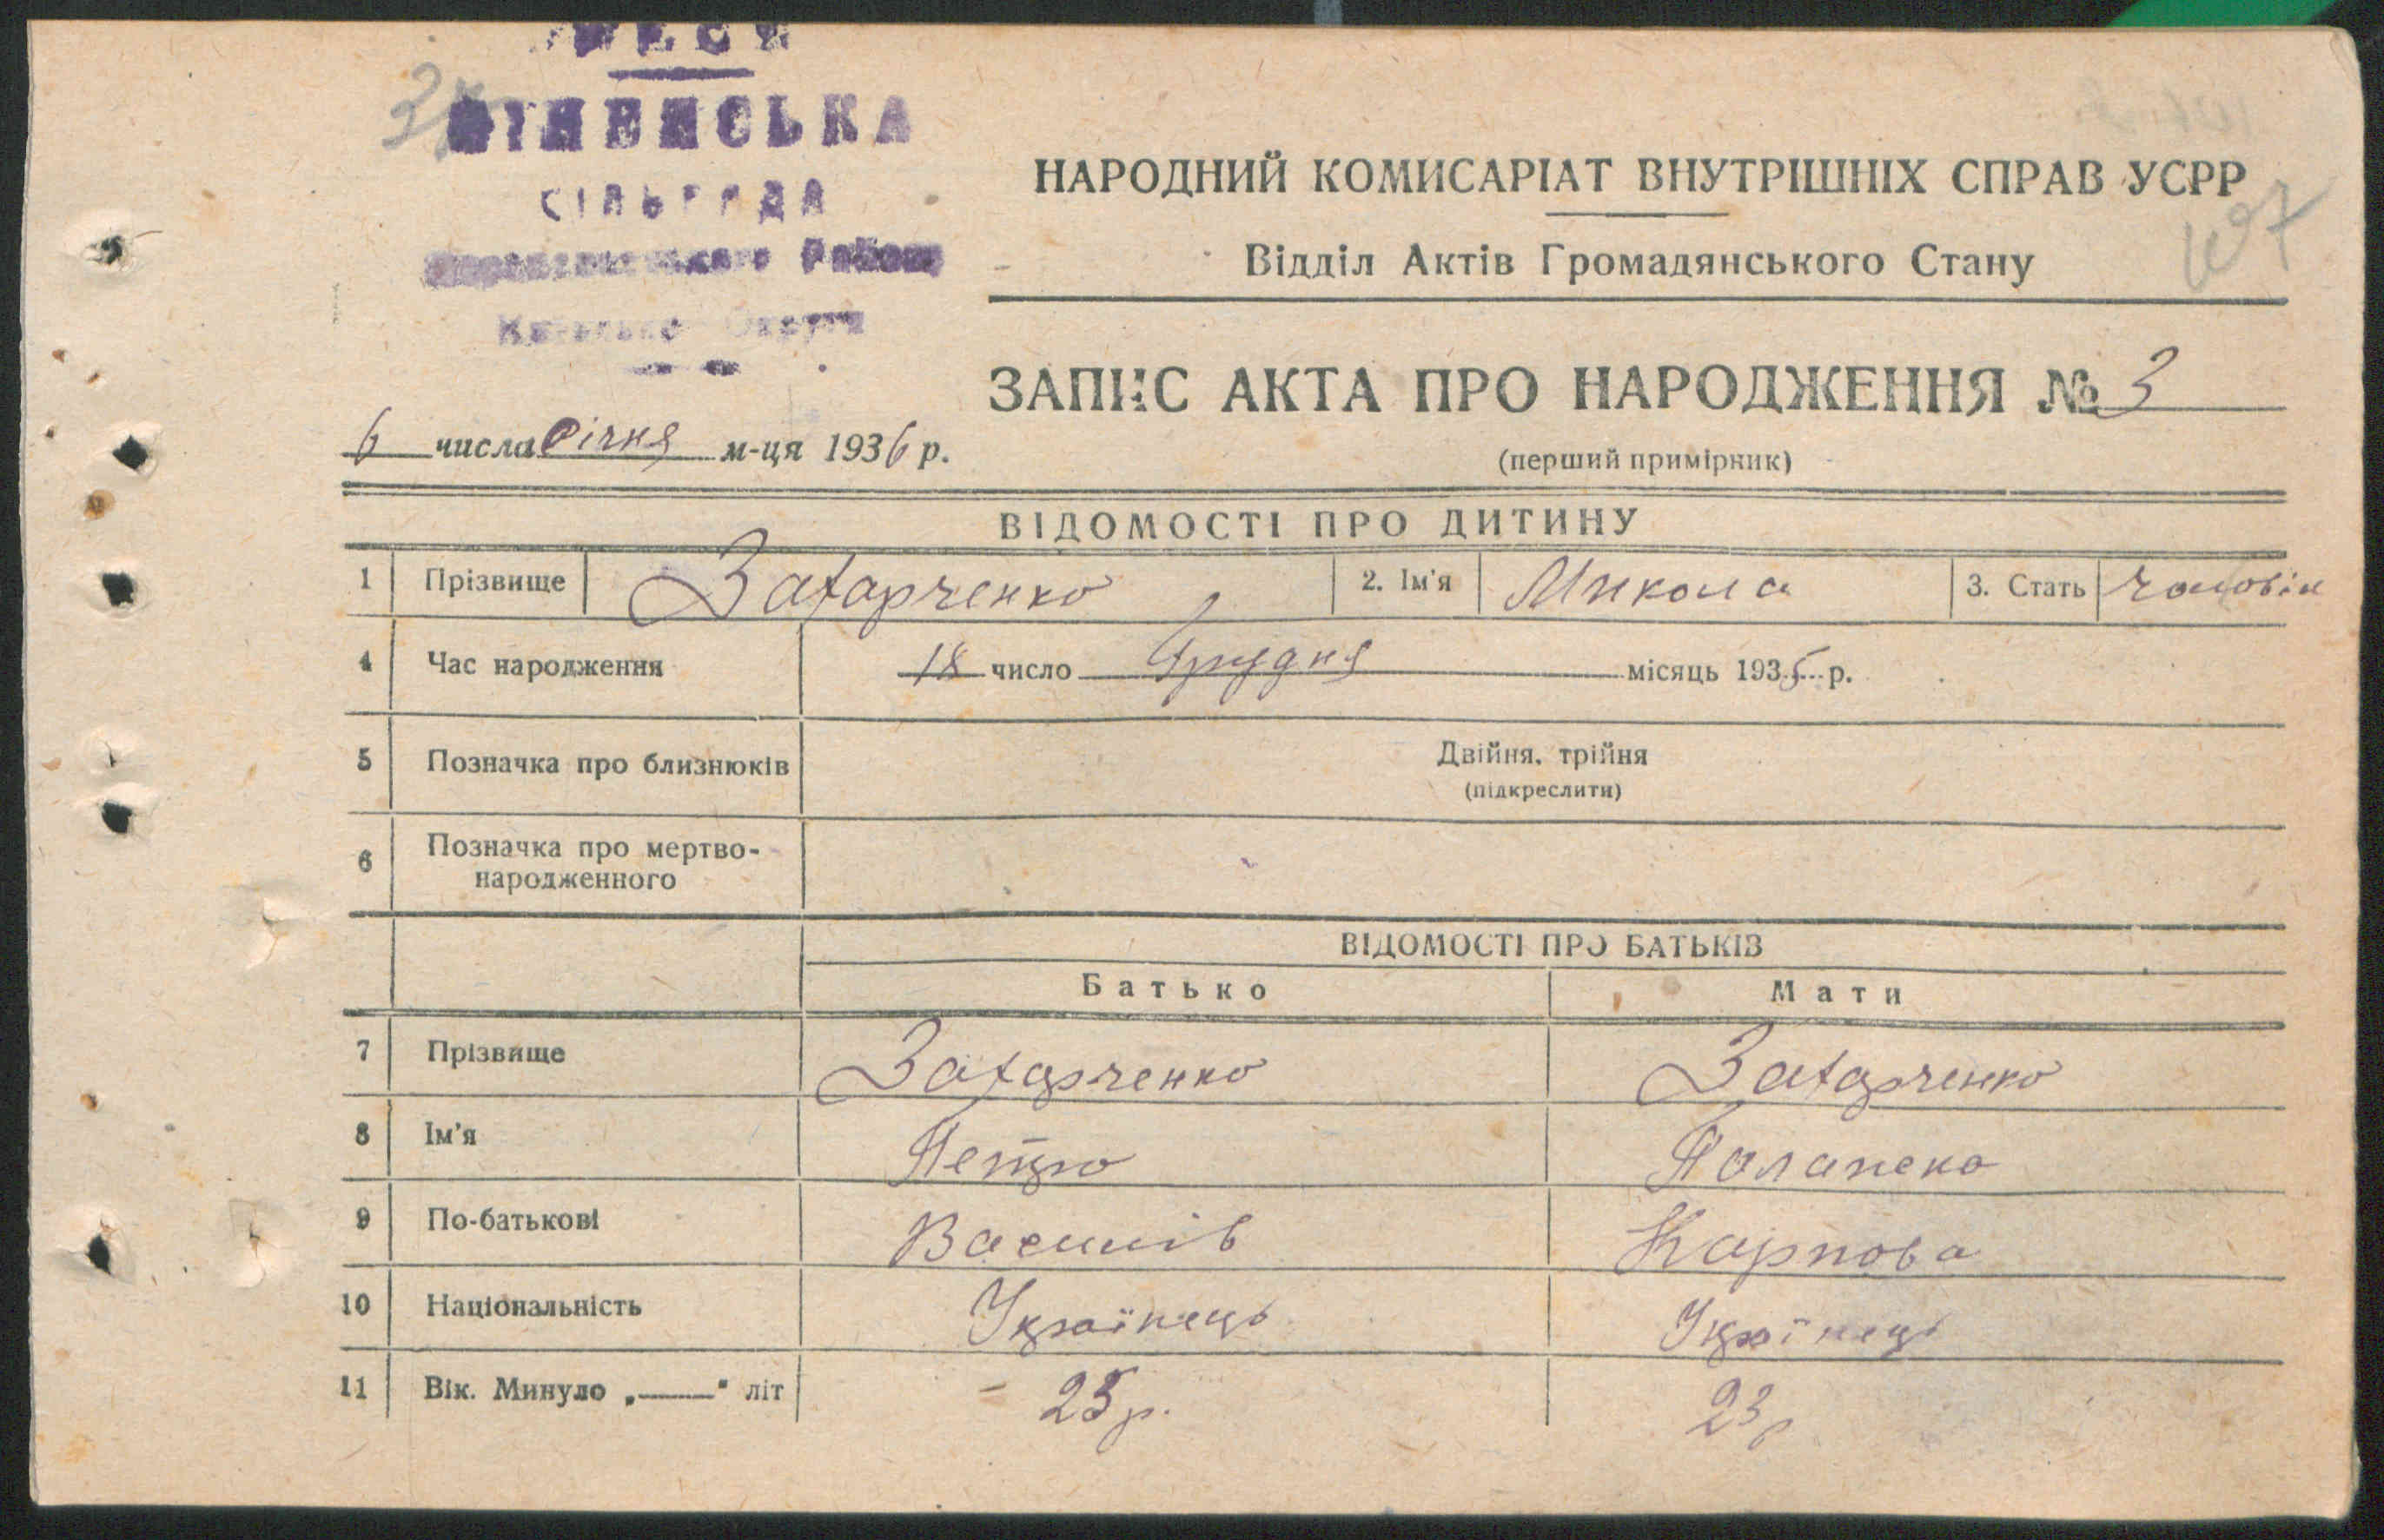 СІЛЬРАДА
Району
Округи
НАРОДНИЙ КОМИСАРІАТ ВНУТРІШНІХ СПРАВ УСРР
107
Відділ Актів Громадянського Стану
ЗАПИС АКТА ПРО НАРОДЖЕННЯ № 3
6 числа Січня м-ця 1936 р.
(перший примірник)
ВІДОМОСТІ ПРО ДИТИНУ
1 Прізвище Захарченко 2. Ім'я Микола 3. Стать чоловік
4 Час народження 18 число Грудня місяць 1935 р.
5 Позначка про близнюків Двійня, трійня
(підкреслити)
6 Позначка про мертво-
народженного
ВІДОМОСТІ ПРО БАТЬКІВ
Батько Мати
7 Прізвище Захарченко Захарченко
8 Ім'я Петро
9 По-батькові Василів Карпова
10 Національність Українець Українець
11 Вік. Минуло „——" літ 25 р. 23 р